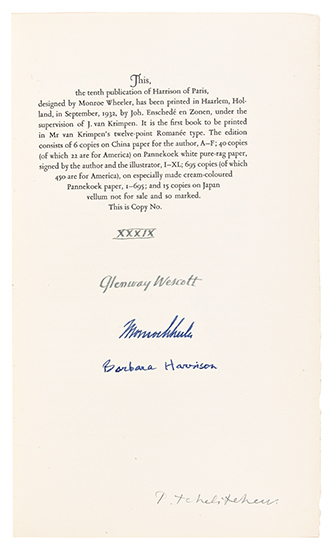 This,
the tenth publication of Harrison of Paris,
designed by Monroe Wheeler, has been printed in Haarlem, Hol-
land, in September, 1932, by Joh. Enschedé en Zonen, under the
supervision of J. van Krimpen. It is the first book to be printed
in Mr van Krimpen's twelve-point Romanée type. The edition
consists of 6 copies on China paper for the author, A–F; 40 copies
(of which 22 are for America) on Pannekoek white pure-rag paper,
signed by the author and the illustrator, I–XL; 695 copies (of which
450 are for America), on especially made cream-coloured
Pannekoek paper, 1–695; and 15 copies on Japan
vellum not for sale and so marked.
This is Copy No.
XXXIX
Glenway Wescott
Monroe Wheeler
Barbara Harrison
P. Tchelitchew